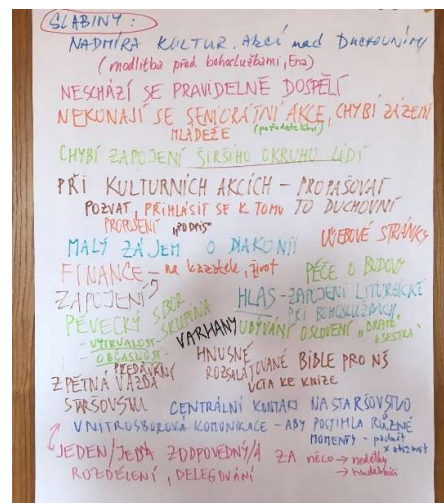 SLABINY:
NADMÍRA KULTUR. AKCÍ nad DUCHOVNÍMI
(modlitba před bohoslužbami, Ena)
NESCHÁZÍ SE PRAVIDELNĚ DOSPĚLÍ
NEKONAJÍ SE SENIORÁTNÍ AKCE, CHYBÍ ZÁZEMÍ
MLÁDEŽE
CHYBÍ ZAPOJENÍ ŠIRŠÍHO OKRUHU LIDÍ
PŘI KULTURNÍCH AKCÍCH - PROPAŠOVAT
POZVAT, PŘIHLÁSIT SE K TOMU TO DUCHOVNÍ
PROPOJENÍ "PODPIS"
WEBOVÉ STRÁNKY
MALÝ ZÁJEM O DIAKONII
FINANCE - na kazatele, život
PÉČE O BUDOVY
ZAPOJENÍ
HLAS - ZAPOJENÍ LITURGICKÉ
PŘI BOHOSLUŽBÁCH
PĚVECKÝ SBOR, SKUPINA
- VYTRVALOST
- OBČASNOST
VARHANY
UBÝVÁNÍ OSLOVENÍ "BRATŘE, SESTRO"
PŘEDÁVÁNÍ
HNUSNÉ
ROZŠALTOVANÉ BIBLE PRO NŠ
ÚCTA KE KNIZE
ZPĚTNÁ VAZBA
STARŠOVSTVU
CENTRÁLNÍ KONTAKT NA STARŠOVSTVO
VNITROSBOROVÁ KOMUNIKACE - ABY POSTIHLA RŮZNÉ
MOMENTY -
JEDEN/JEDNA ZODPOVĚDNÝ/Á ZA něco → nedělky
→ hudebníci
ROZDĚLENÍ, DELEGOVÁNÍ